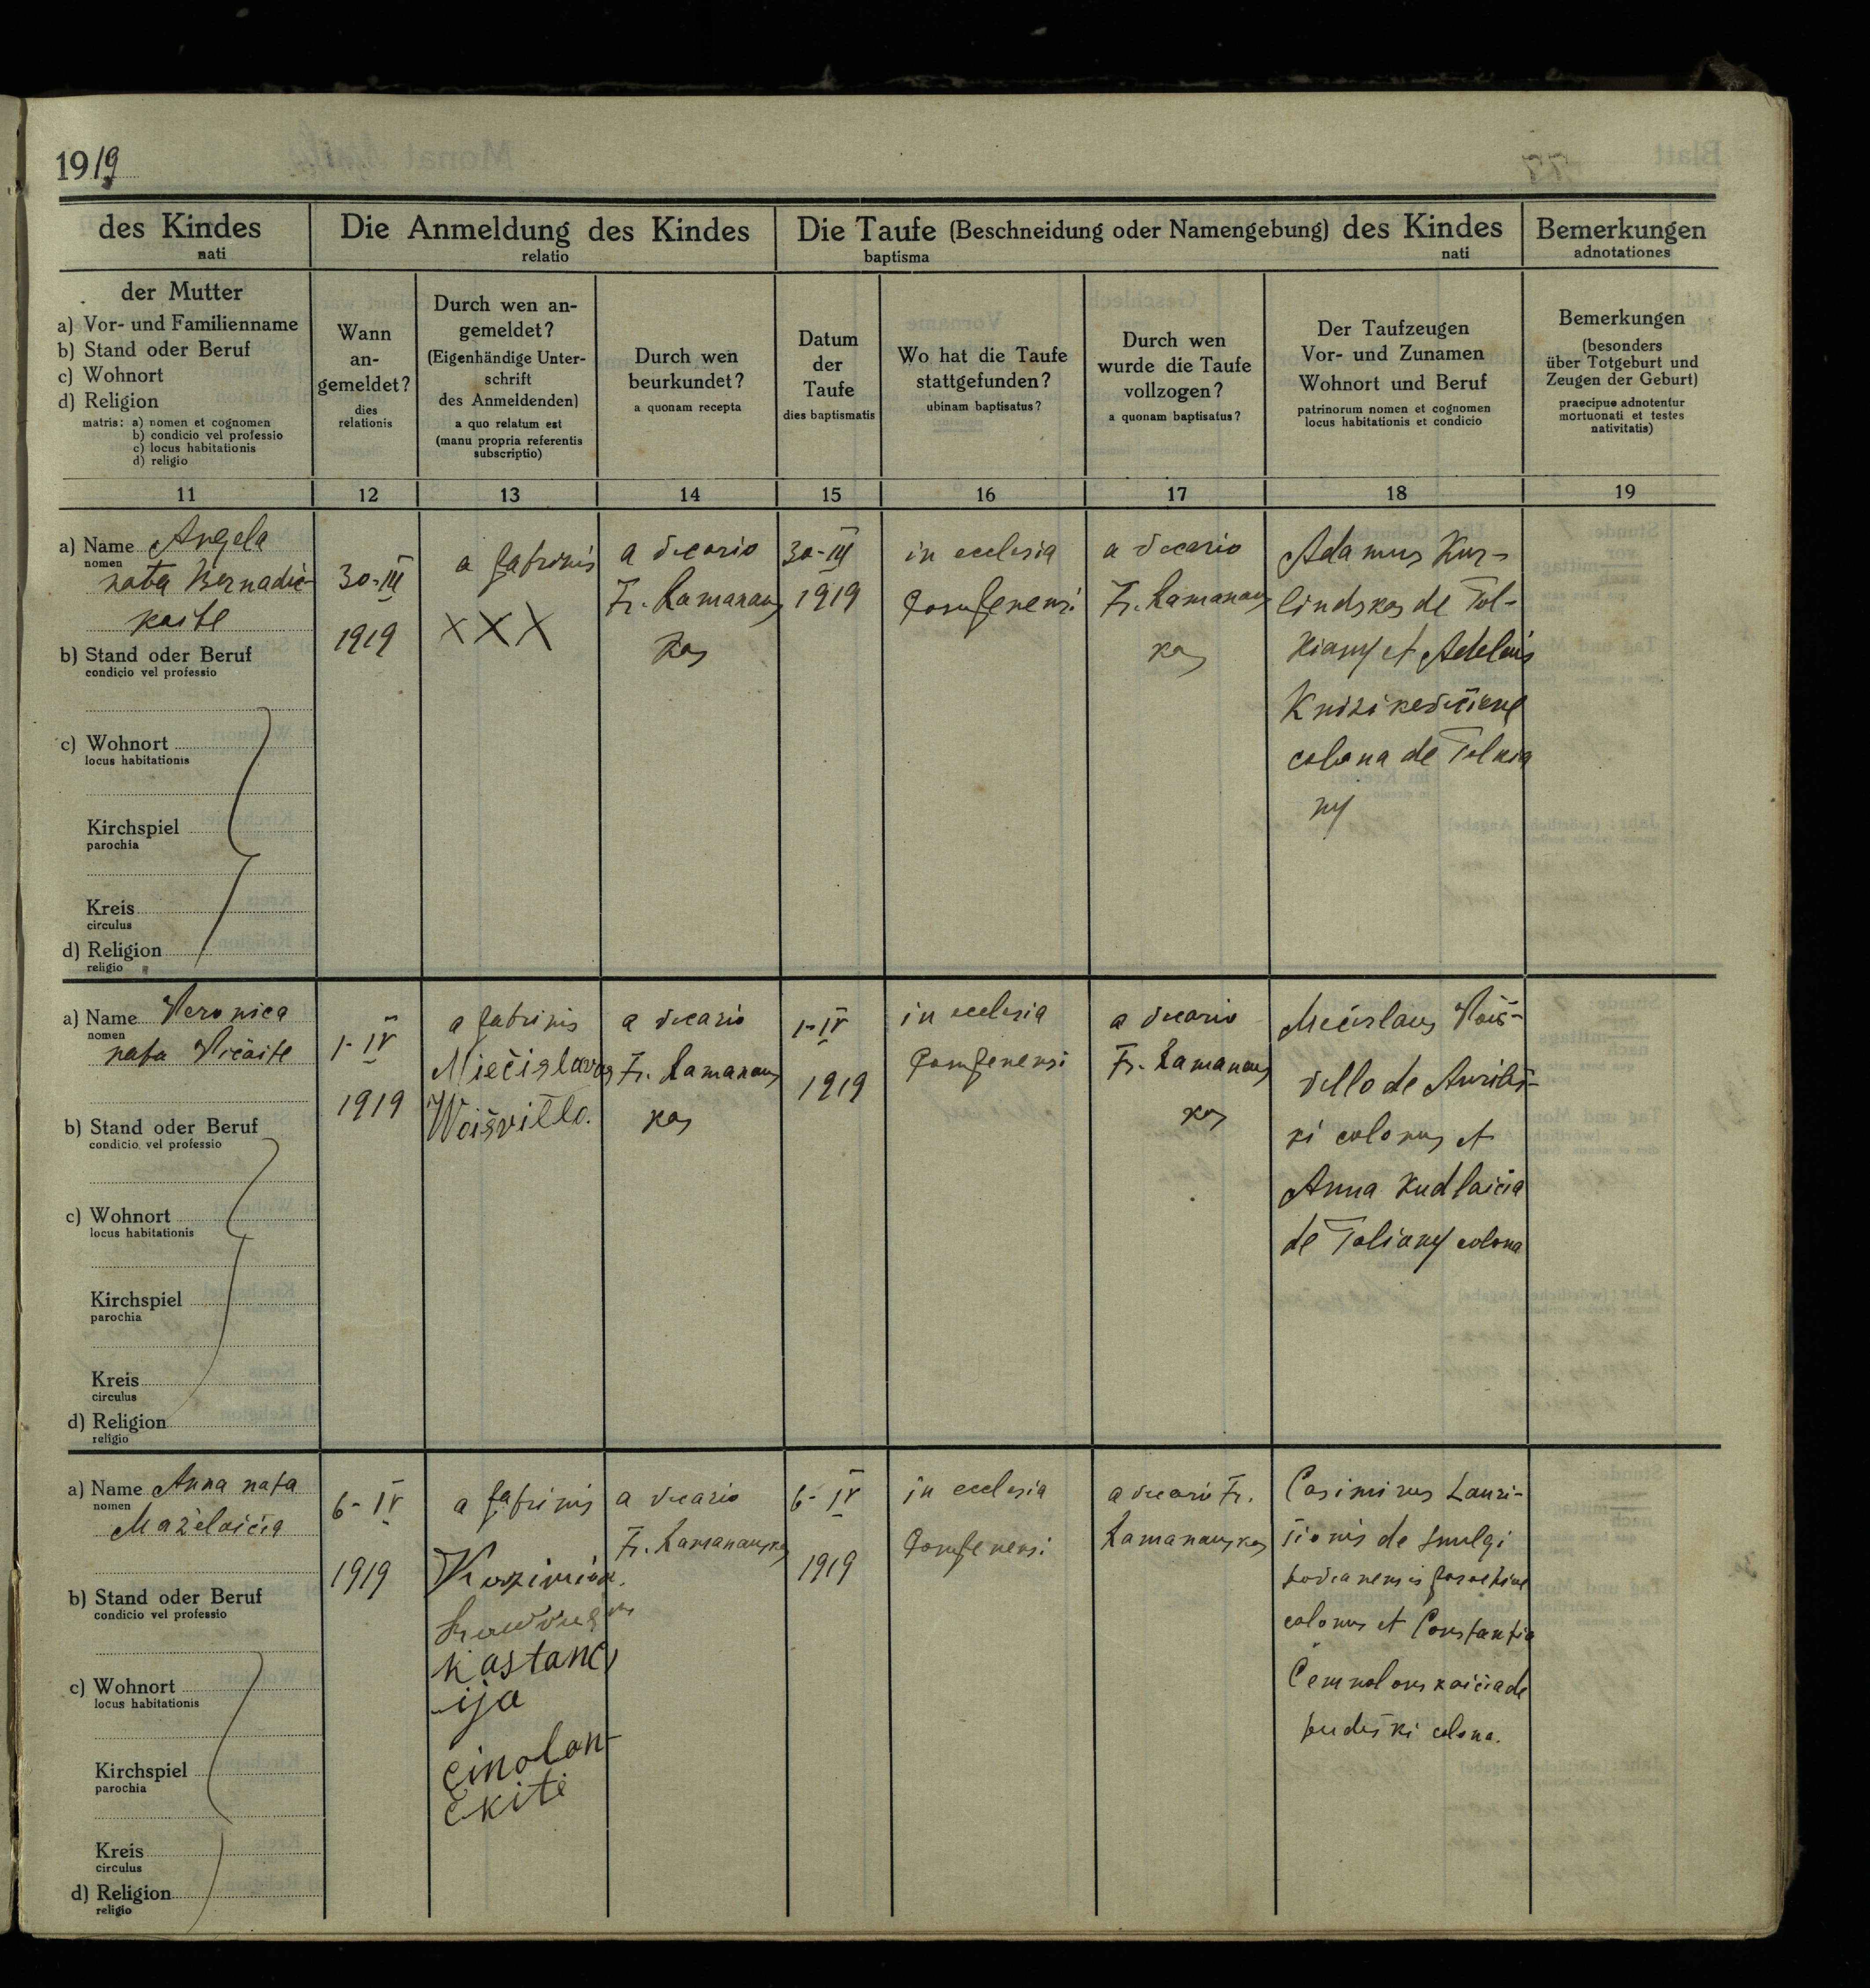 1919
des Kindes
nati
Die Anmeldung des Kindes
relatio
Die Taufe (Beschneidung oder Namengebung) des Kindes
baptisma nati
Bemerkungen
adnotationes
der Mutter
a) Vor- und Familienname
b) Stand oder Beruf
c) Wohnort
d) Religion
matris: a) nomen et cognomen
b) condicio vel professio
c) locus habitationis
d) religio
Wann
an-
gemeldet?
dies
relationis
Durch wen an-
gemeldet?
(Eigenhändige Unter-
schrift
des Anmeldenden)
a quo relatum est
(manu propria referentis
subscriptio)
Durch wen
beurkundet?
a quonam recepta
Datum
der
Taufe
dies baptismatis
Wo hat die Taufe
stattgefunden?
ubinam baptisatus?
Durch wen
wurde die Taufe
vollzogen?
a quonam baptisatus?
Der Taufzeugen
Vor- und Zunamen
Wohnort und Beruf
patrinorum nomen et cognomen
locus habitationis et condicio
Bemerkungen
(besonders
über Totgeburt und
Zeugen der Geburt)
praecipue adnotentur
mortuonati et testes
nativitatis)
11 12 13 14 15 16 17 18 19
a) Name Angela
nomen
nata Bernadic-
kaite
b) Stand oder Beruf
condicio vel professio
c) Wohnort
locus habitationis
Kirchspiel
parochia
Kreis
circulus
d) Religion
religio
30-III
1919
a patrinis
XXX
a vicario
Fr. Ramanaus
kas
30-III
1919
in ecclesia
a vicario
Fr. Ramanaus
kas
Adamus Kur-
lindskas de Tol-
kiany et
colona de Tolkia
ny
a) Name Veronica
nomen
nata Vičaite
b) Stand oder Beruf
condicio vel professio
c) Wohnort
locus habitationis
Kirchspiel
parochia
Kreis
circulus
d) Religion
religio
1-IV
1919
a patrinis
Miečislavas
Woišvillo.
a vicario
Fr. Ramanaus
kas
1-IV
1919
in ecclesia
a vicario
Fr. Ramanaus
kas
Mečislaus Voiš-
villo de
ki colonus et
Anna Kudlaičia
de Toliany colona
a) Name Anna nata
nomen
Maželaičia
b) Stand oder Beruf
condicio vel professio
c) Wohnort
locus habitationis
Kirchspiel
parochia
Kreis
circulus
d) Religion
religio
6-IV
1919
a patrinis
kastanc
ija
cinolon-
ckiti
a vicario
Fr. Ramanauskas
6-IV
1919
in ecclesia
a vicario Fr.
Ramanauskas
Casimirus Lauri-
de Smulgi
colonus et Constantia
colona.